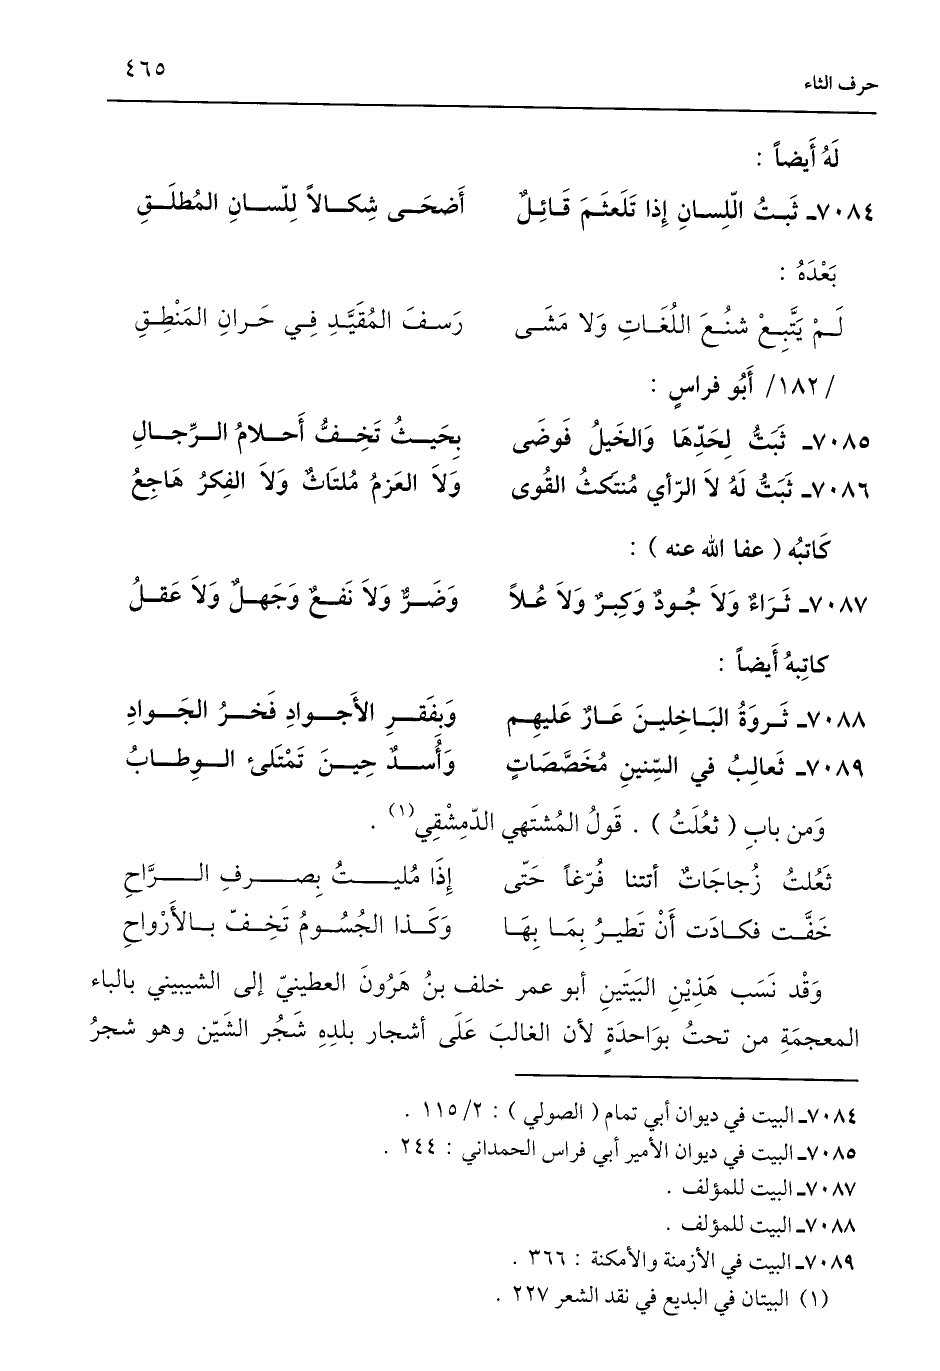 حرف الثاء ٤٦٥
لَهُ أَيضاً :
٧٠٨٤ـ ثَبتُ اللّسانِ إِذا تَلَعثَمَ قَائِلٌ أَضحَى شِكالاً لِلّسانِ المُطلَقِ
بَعْدَهُ :
لَمْ يَتَّبِعْ شنُعَ اللُغَاتِ وَلا مَشَى رَسفَ المُقَيَّدِ فِي حَرانِ المَنْطِقِ
/ ١٨٢/ أَبُو فراسٍ :
٧٠٨٥ـ ثَبَتُّ لِحَدِّهَا وَالخَيلُ فَوضَى بِحَيثُ تَخِفُّ أَحلامُ الرِّجالِ
٧٠٨٦ـ ثَبَتُّ لَهُ لاَ الرّأي مُنتَكثُ القُوى وَلاَ العَزمُ مُلتَاثٌ وَلاَ الفِكرُ هَاجِعُ
كَاتبُه ( عفا الله عنه ) :
٧٠٨٧ـ ثَرَاءٌ وَلاَ جُودٌ وَكِبرٌ وَلاَ عُلاً وَضَرٌّ وَلاَ نَفعٌ وَجَهلٌ وَلاَ عَقلُ
كاتِبهُ أَيضاً :
٧٠٨٨ـ ثَروَةُ البَاخِلينَ عَارٌ عَليهِم وَبِفَقرِ الأَجوادِ فَخرُ الجَوادِ
٧٠٨٩ـ ثَعالِبُ في السِّنينِ مُخَصَّصَاتٍ وَأُسدٌ حِينَ تَمْتَلىءُ الوِطابُ
وَمن بابِ ( ثعُلَتُ ) . قَولُ المُشتَهي الدّمِشْقِي(١) .
ثَعُلتُ زُجاجَاتٌ أتتنا فُرّغاً حَتّى إِذَا مُليتُ بِصرفِ الرَّاحِ
خَفَّت فكادَت أَنْ تَطيرُ بِمَا بِهَا وَكَذا الجُسُومُ تَخِفّ بالأَرْواحِ
وَقْد نَسَب هَذِيْنِ البَيتَينِ أبو عمر خلف بنُ هَرُونَ العطينيّ إلى الشيبيني بالباء
المعجمَةِ من تحتُ بوَاحدَةٍ لأن الغالبَ عَلَى أشجار بلدِهِ شَجُر الشَيّن وهو شجرُ
٧٠٨٤ـ البيت في ديوان أبي تمام ( الصولي ) : ٢/ ١١٥ .
٧٠٨٥ـ البيت في ديوان الأمير أبي فراس الحمداني : ٢٤٤ .
٧٠٨٧ـ البيت للمؤلف .
٧٠٨٨ـ البيت للمؤلف .
٧٠٨٩ـ البيت في الأزمنة والأمكنة : ٣٦٦ .
(١) البيتان في البديع في نقد الشعر ٢٢٧ .